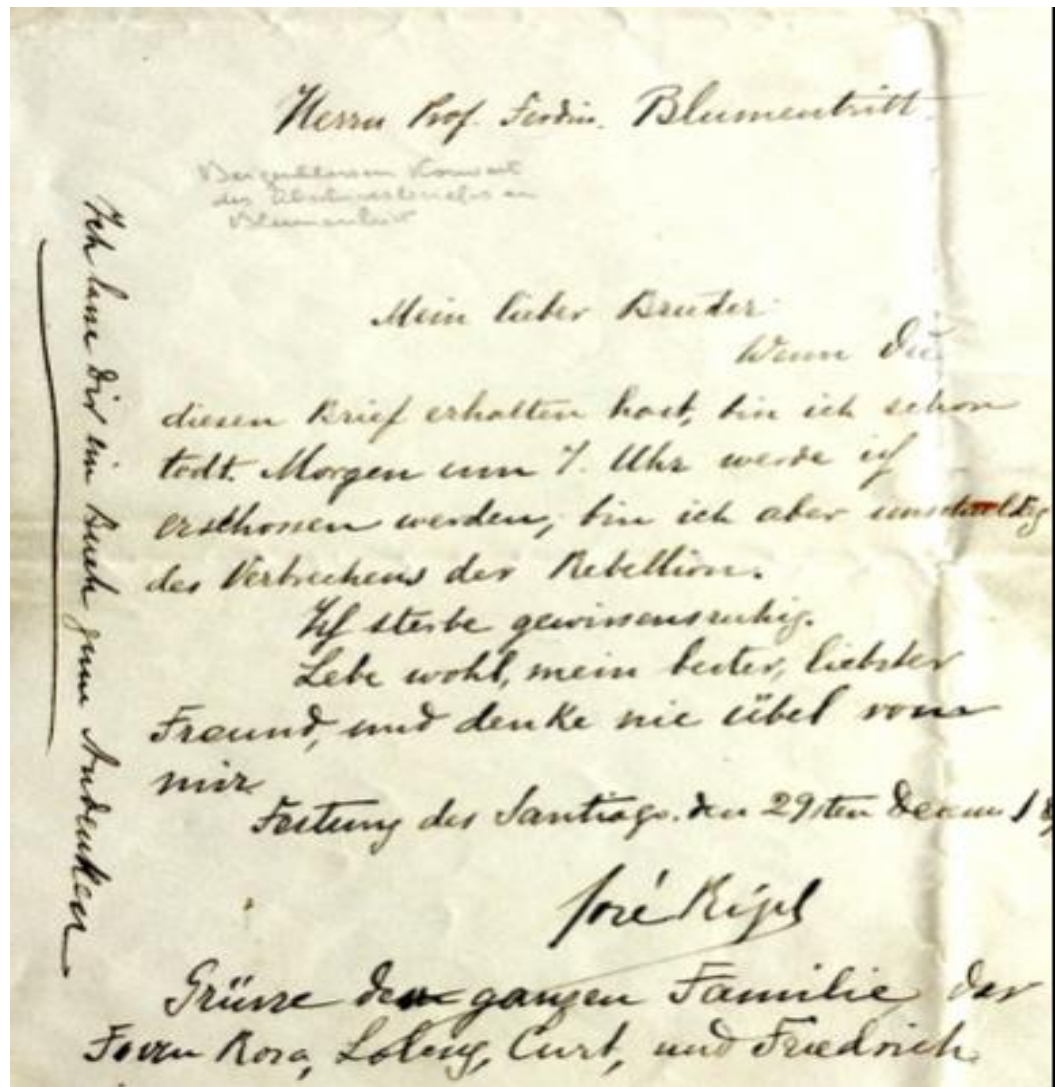 Herrn Prof. Ferdin. Blumentritt
Mein lieber Bruder
Wenn Du
diesen Brief erhalten hast, bin ich schon
todt. Morgen um 7. Uhr werde ich
erschossen werden, bin ich aber unschuldig
des Verbrechens der Rebellion.
Ich sterbe gewissensruhig.
Lebe wohl, mein bester, liebster
Freund, und denke nie übel von
mir.
Festung des Santiago. den 29sten Decem 18
José Rizal
Grüsse der ganzen Familie, der
Rosa, Loleng, Curt, und Friedrich
Ich lasse Dir ein Buch zum Andenken